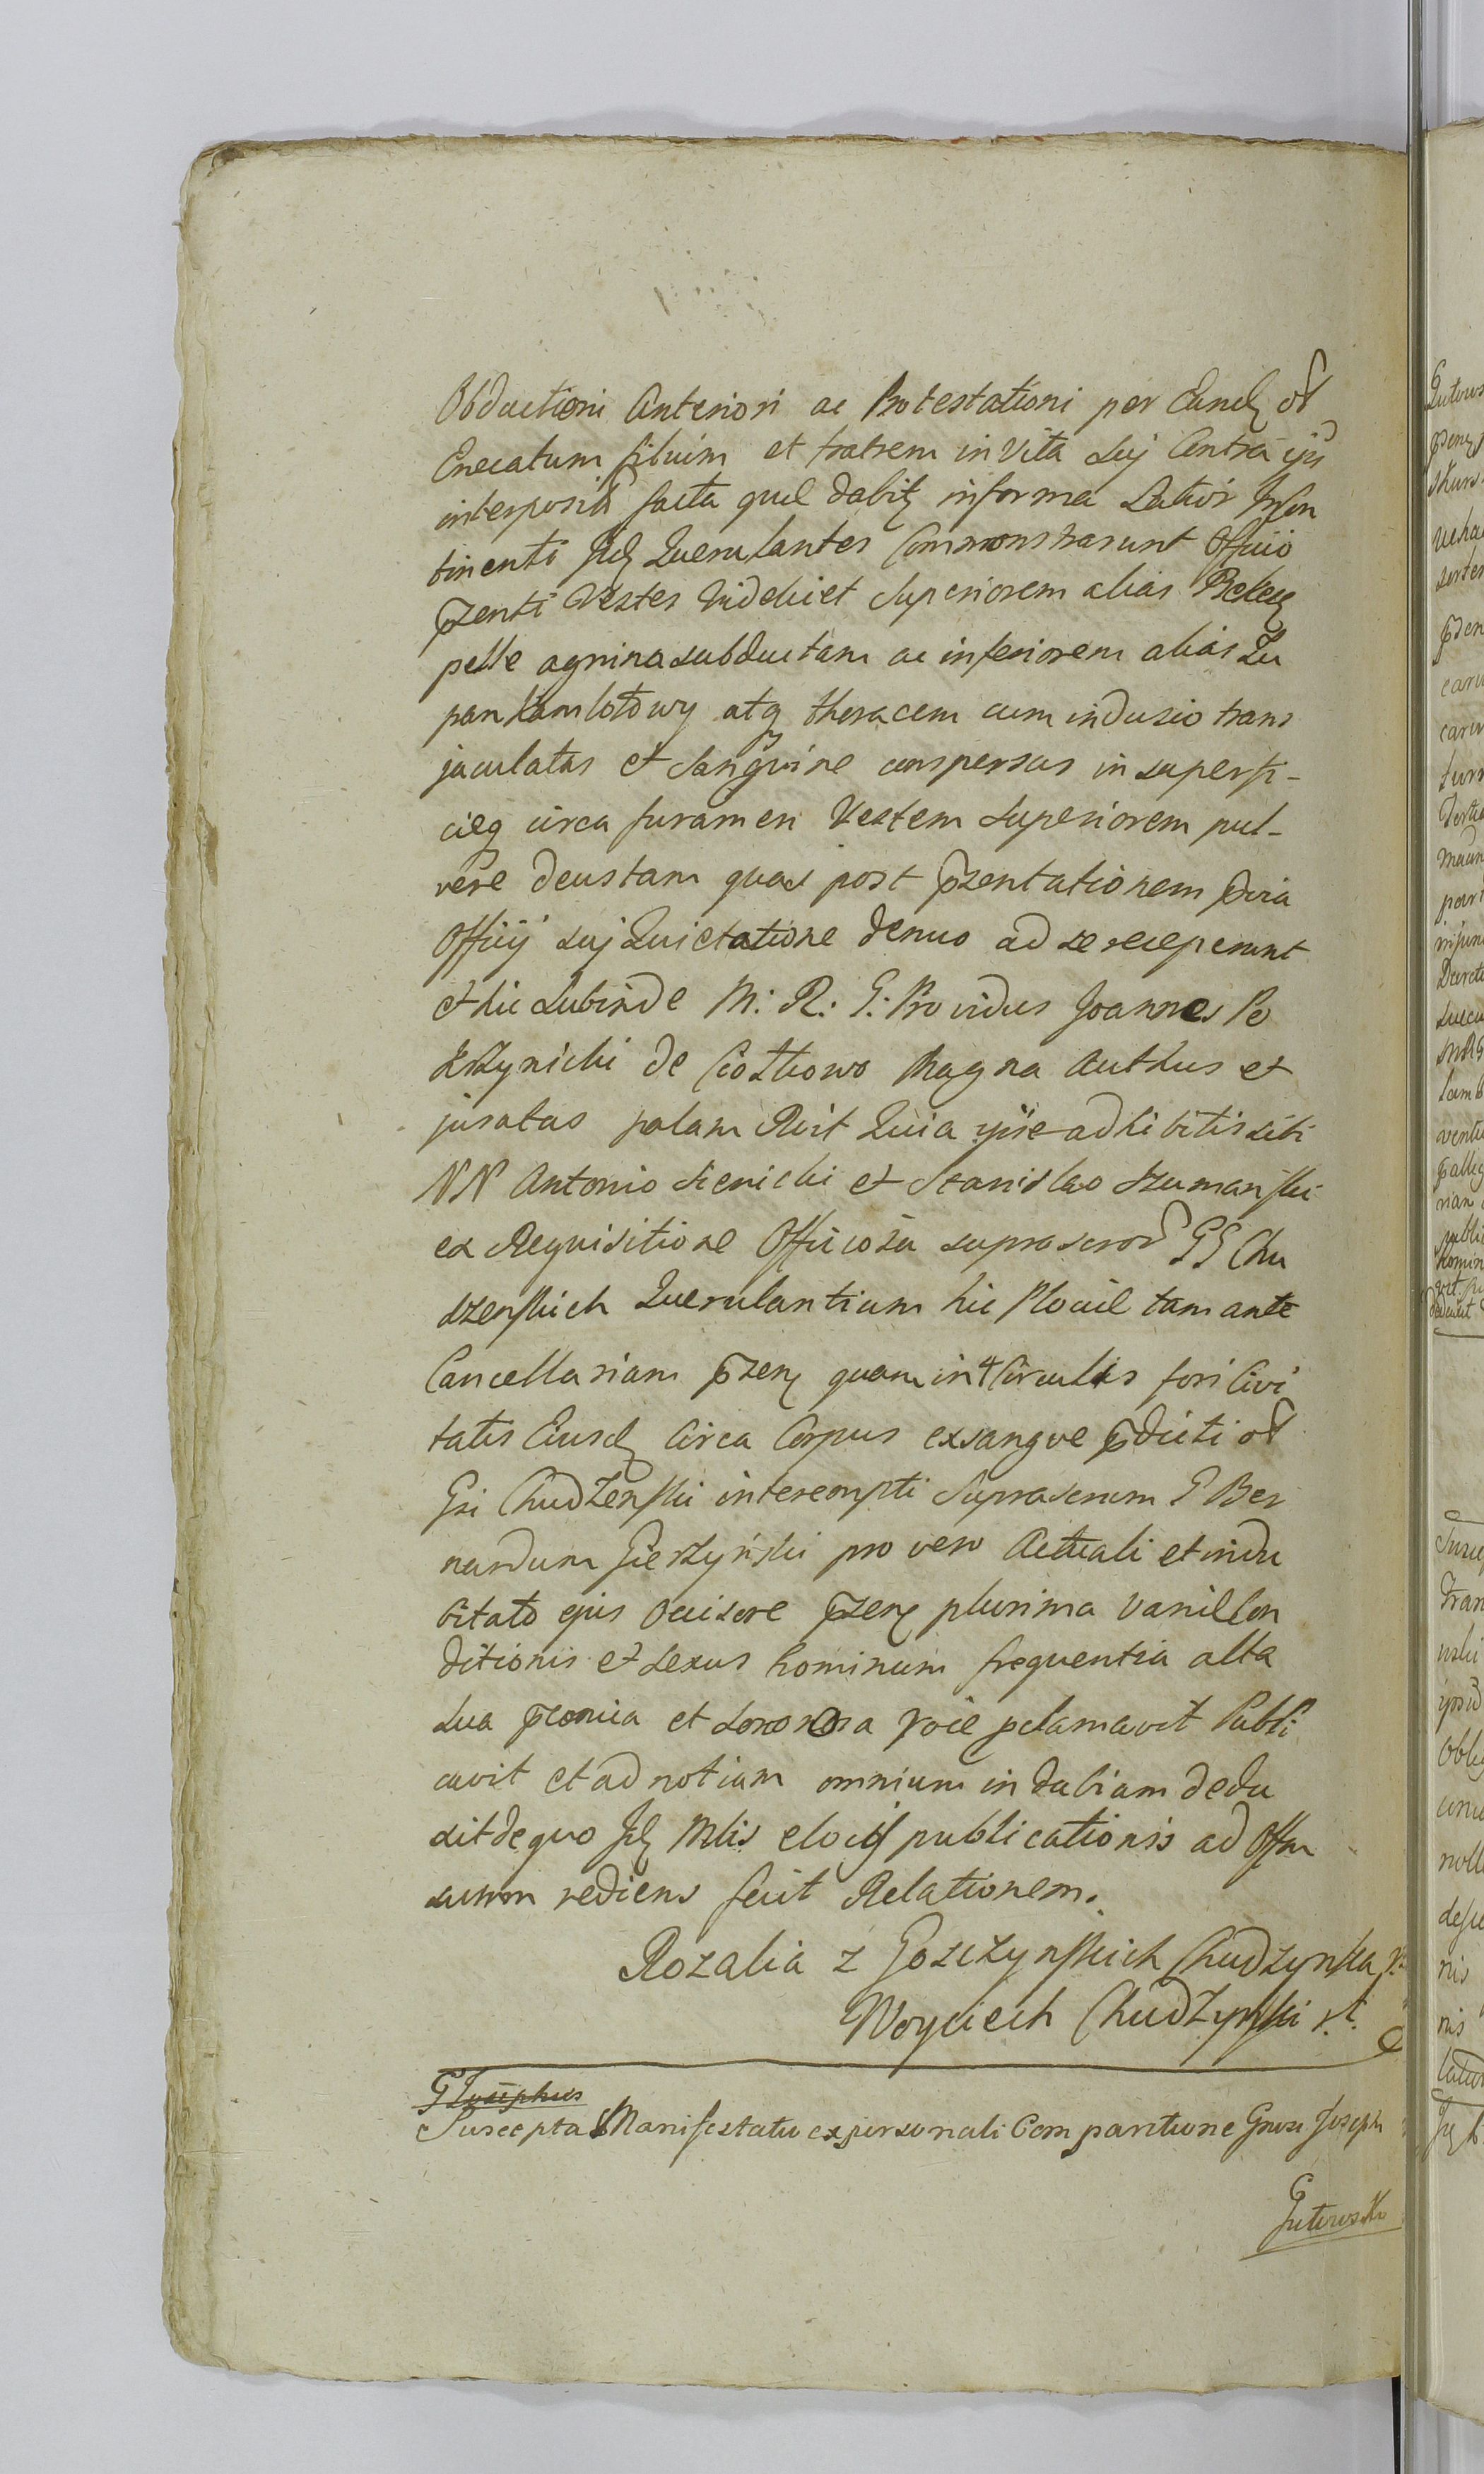 Obductioni Anteriori ac Protestationi per Eund ol
Enecatum filium et fratrem in Vita Sui Contra ips
interposit facta quae dabit in forma Latior Incon
tinenti Iid Querulantes Commonstrarunt Officio
pzenti Vestes Videlicet Superiorem alias Bekesz
pelle agnina subductam ac inferiorem alias Zu
pan Kamlotowy atq thoracem cum indusio trans
jaculatas et Sanguine conspersas in superfi-
cieq circa foramen Vestem Superiorem pul-
vere deustam quas post pzentationem pvia
Officij sui Quietatione denuo ad se receperunt
et hic Subinde M: R: G: Providus Joannes Po
de Magna Authus et
juratus palam Rcit Quia ipse adhibitis sibi
NN Antonio Sienicki et Stanislao Szumanski
ex Requisitione Officiosa suprascror GG Chu
dzenskich Querulantium hic Plocae tam ante
Cancellariam pzen quam in 4 Circulis fori Civi
tatis Eiusd Circa Corpus exsangve pdicti ol
Gsi Chudzenski interempti Suprascrum G Ber
nardum pro vero Actuali et indu
bitato ejus Occisore pzen plurima varii Con
ditionis et Sexus hominum frequentia alta
sua pconica et sonorosa voce pclamavit Publi
cavit et ad notiam omnium indubiam dedu
xit de quo Id Mlis elocis publicationis ad Offm
suum rediens fecit Relationem.
Rozalia z Goszczynskich Chudzynska
Woyciech Chudzynski
G Josephus
Suscepta Manifestatu ex personali Comparitione Gnosi Joseph
Gutowski